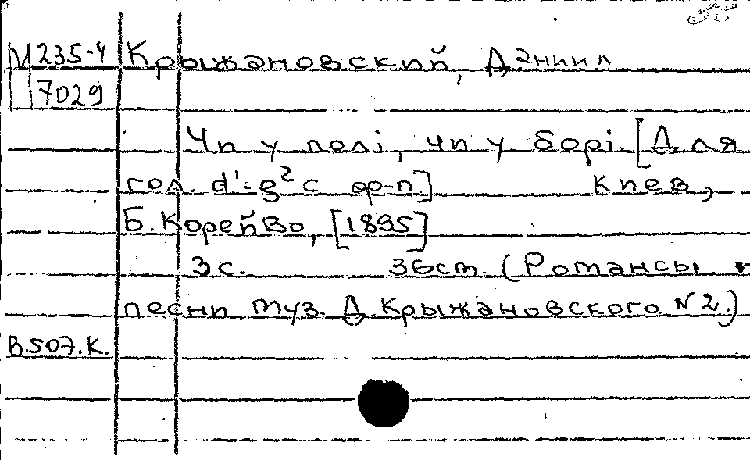 М 235-4 Крыжановский, Даниил
7029
Чи у полі, чи у борі [Для
гол. d'-g² с ф-п.] Киев,
Б. Корейво, [1895]
3 с. 36 ст. (Романсы и
песни муз. Д. Крыжановского № 2.)
В.507.К.